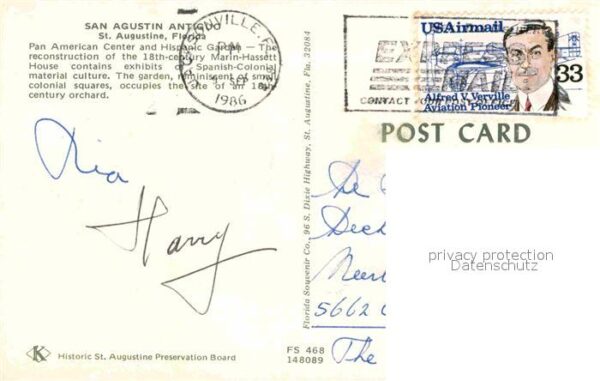 SAN AGUSTIN ANTIGUO
St. Augustine, Florida
Pan American Center and Hispanic Garden — The
reconstruction of the 18th-century Marin-Hassett
House contains exhibits of Spanish-Colonial
material culture. The garden, reminiscent of small
colonial squares, occupies the site of an 18th-
century orchard.
PM
1986
EXPRESS
MAIL
CONTACT
USAirmail
33
Alfred V. Verville
Aviation Pioneer
POST CARD
Ria
Harry
Florida Souvenir Co., 96 S. Dixie Highway, St. Augustine, Fla. 32084
De
5662
The
privacy protection
Datenschutz
K
Historic St. Augustine Preservation Board
FS 468
148089